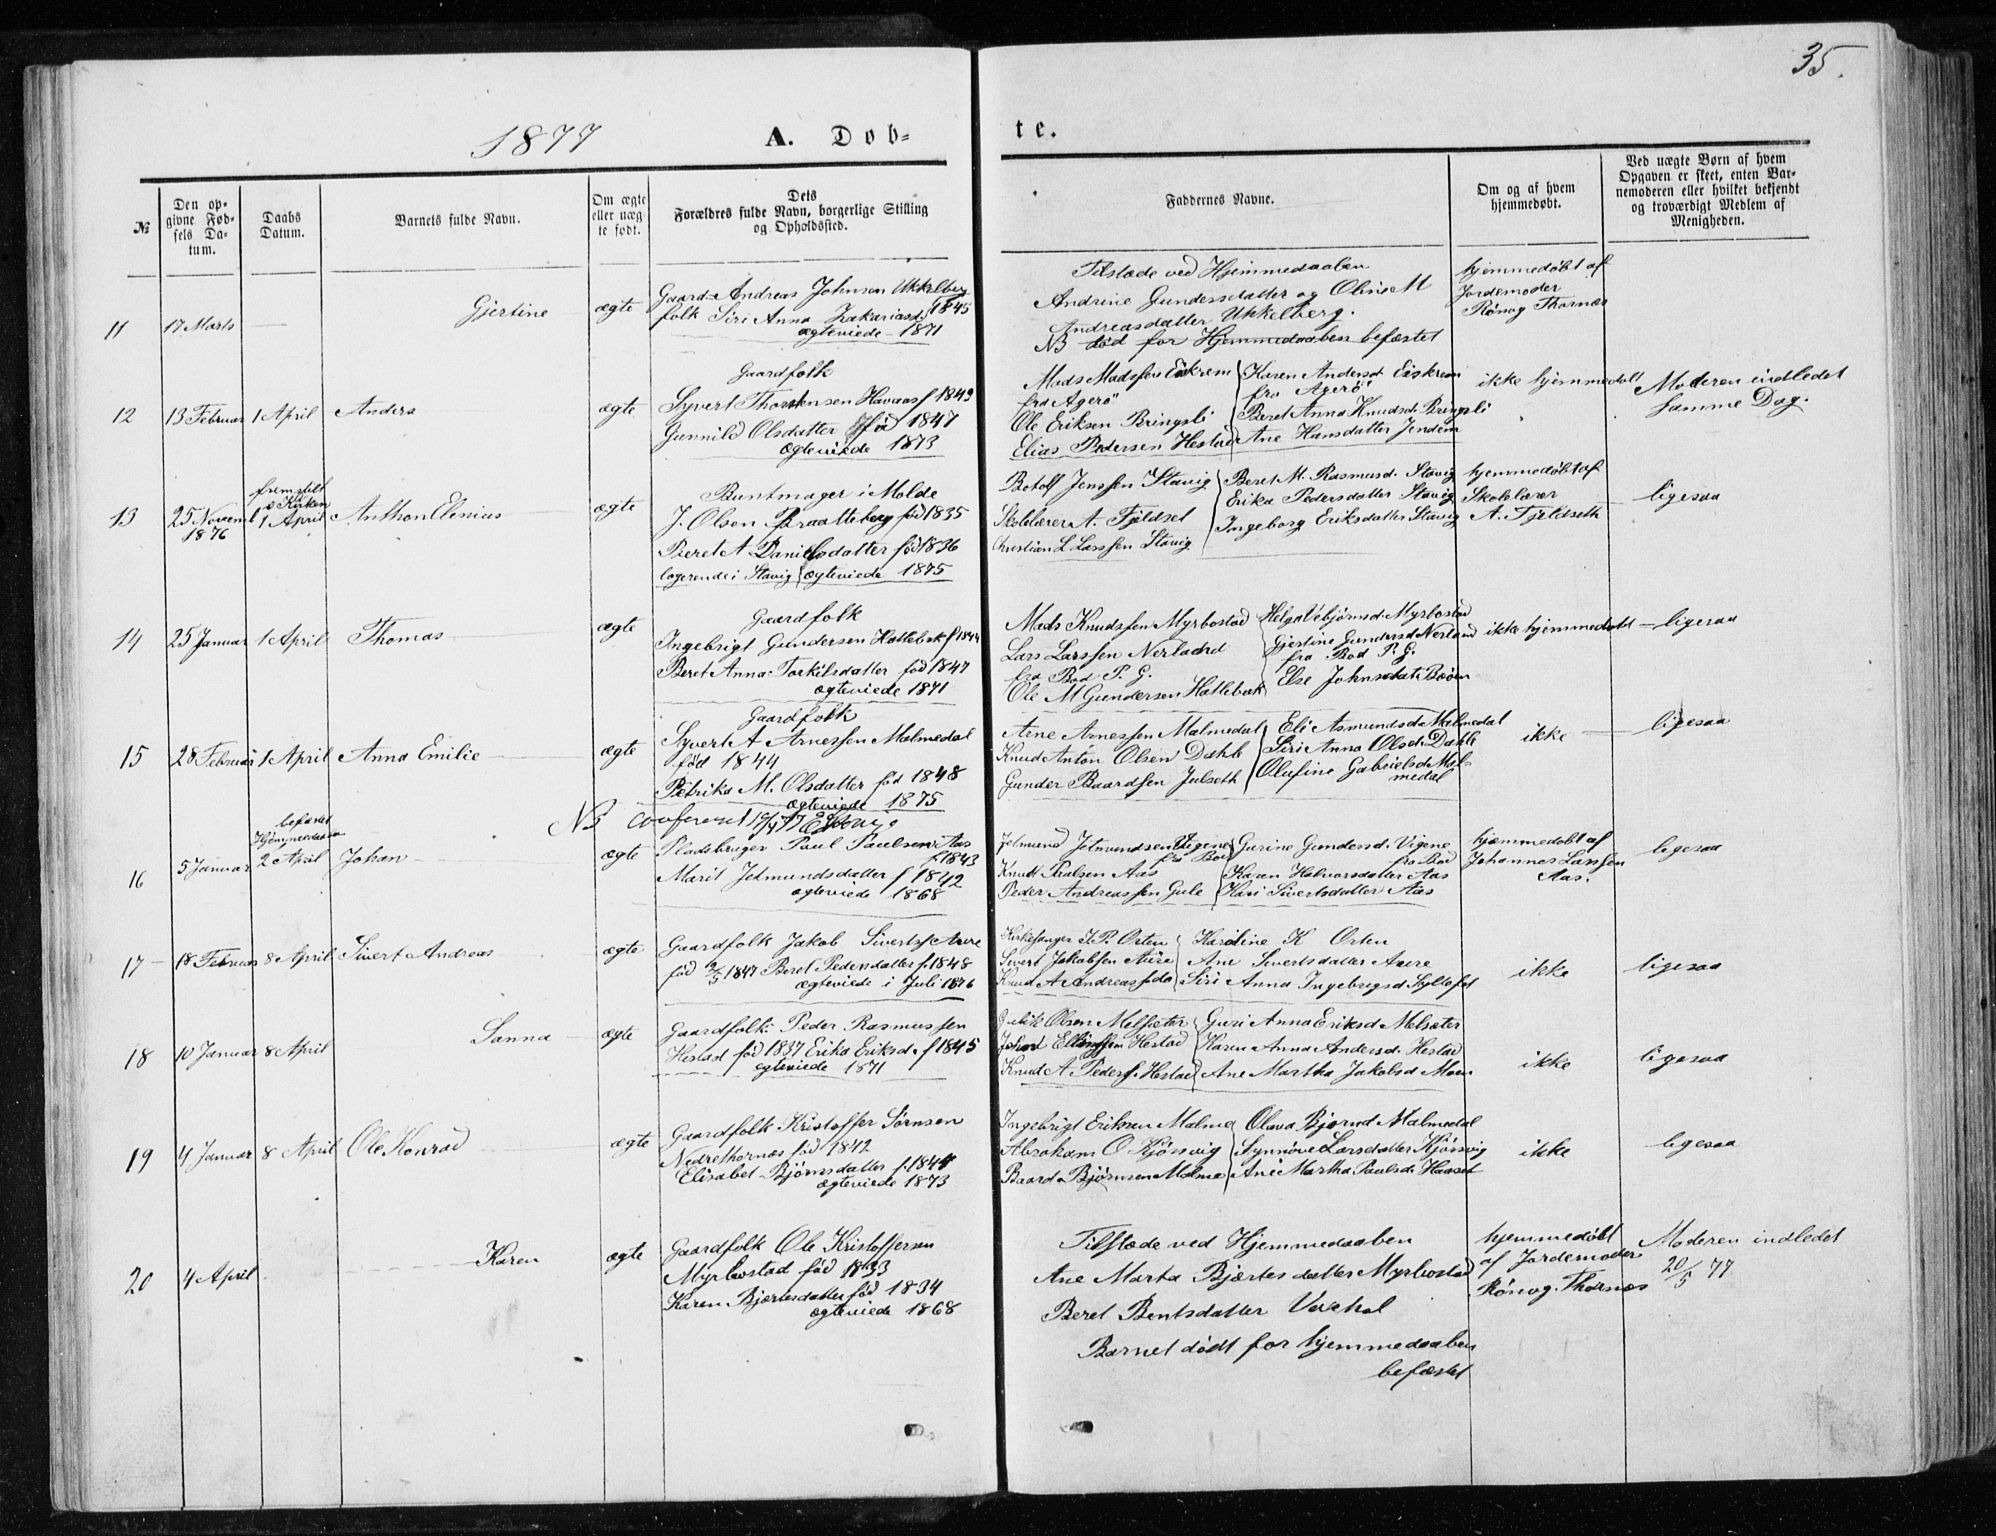 35.
1877
A. Döb=
te.
№
Den op-
givne Fød-
sels Da-
tum.
Daabs
Datum.
Barnets fulde Navn.
Om ægte
eller uæg-
te født.
Dets
Forældres fulde Navn, borgerlige Stilling
og Opholdssted.
Faddernes Navne.
Om og af hvem
hjemmedøbt.
Ved uægte Børn af hvem
Opgaven er skeet, enten Bar-
nemoderen eller hvilket bekjendt
og troværdigt Medlem af
Menigheden.
11
17 Marts
Gjertine
ægte
Gaard- Andreas Johnsen Ukkelberg
folk Siri Anna Zakariasd. 1845
ægteviede 1871
Tilstæde ved Hjemmedaaben
Andrine Gundersdatter og Oline M
Andreasdatter Ukkelberg.
NB død før Hjemmedaaben befæstet
hjemmedøbt af
Jordemoder
Rønog Thornæs
12
13 Februar
1 April
Anders
ægte
Gaardfolk
Syvert Thorstensen Havaas f 1849
Gunnild Olsdatter fød 1847
ægteviede 1873
Mads Madssen Eiskrem
fra Agerö
Ole Eriksen Bringsli
Elias Pedersen Hestad
Karen Andersd Eiskrem
fra Agerö
Beret Anna Knudsd. Bringsli
Ane Hansdatter Jendem
ikke hjemmedøbt
Moderen indledet
samme Dag.
13
25 Novembr
1876
fremstilt
i Kirken
1 April
Anthon Elenius
ægte
Buntmager i Molde
J. Olsen Braatteberg fød 1835
Beret A Danielsdatter fød 1836
logerende i Stavig ægteviede 1875
Botolf Jenssen Stavig
Skolelærer A. Fjeldset
Christian L Larssen Stavig
Beret M. Rasmusd. Stavig
Erika Pedersdatter Stavig
Ingeborg Eriksdatter Stavig
hjemmedøbt af
Skolelærer
A. Fjeldseth
ligesaa
14
25 Januar
1 April
Thomas
ægte
Gaardfolk
Ingebrigt Gundersen Hatlebak f 1844
Beret Anna Torkilsdatter fød 1847
ægteviede 1871
Mads Knudssen Myrbostad
Lars Larssen Nerland
fra Bod P. G.
Ole M Gundersen Hatlebak
Helga Vebjørnsd Myrbostad
Gjertine Gundersd Nerland
fra Bod P. G.
Else Johnsdat. Bøen
ikke hjemmedøbt
ligesaa
15
28 Februar
1 April
Anna Emilie
ægte
Gaardfolk
Syvert A Arnessen Malmedal
født 1844
Petrika M. Olsdatter fød 1848
ægteviede 1875
Arne Arnessen Malmedal
Knud Anton Olsen Dahle
Gunder Baardsen Julseth
Eli Asmundsd. Malmedal
Siri Anna Olsd. Dahle
Olufine Gabrielsd Mal-
medal
ikke
ligesaa
NB Confereret
16
5 Januar
befæstet
Hjemmedaaben
2 April
Johan
ægte
Pladsbruger Paul Paulsen Aas
f. 1843
Marit Jetmundsdatter f 1842
ægteviede 1868
Jetmund Jetmundsen Vigene
fra Bod
Knut Paulsen Aas
Peder Andreassen Gule
Gurine Gundersd. Vigene
fra Bod
Karen Halvorsdatter Aas
Kari Sivertsdatter Aas
hjemmedøbt af
Johannes Larssen
Aas.
ligesaa
17
18 Februar
8 April
Sivert Andreas
ægte
Gaardfolk Jakob Sivertss Aure
fød 2/5 1847 Beret Pedersdatter f. 1848
ægteviede i Juli 1876
Kirkesanger J. P. Orten
Sivert Jakobsen Aure
Knud A Andreassen do
Karoline K Orten
Ane Sivertsdatter Aure
Siri Anna Ingebrigsd Sylteset
ikke
ligesaa
18
10 Januar
8 April
Sanna
ægte
Gaardfolk Peder Rasmussen
Hestad fød 1837 Erika Eriksd. f 1845
ægteviede 1871
Gulik Olsen Melsæter
Johan Ellingsen Hestad
Knud A Peders. Hestad
Guri Anna Eriksd Melsæter
Karen Anna Andersd. Hestad
Ane Martha Jakobsd Moen
ikke
ligesaa
19
4 Januar
8 April
Ole Konrad
ægte
Gaardfolk Kristoffer Sørnsen
Nedrethornæs fød 1842
Elisabet Bjørnsdatter f. 1844
ægteviede 1873
Ingebrigt Eriksen Malme
Abraham O Kjørsvig
Baard Bjørnsen Malme
Olava Bjørnsd Malmedal
Synnöve Larsdatter Kjörsvig
Ane Martha Paulsd. Haaset
ikke
ligesaa
20
4 April
Karen
ægte
Gaardfolk Ole Kristoffersen
Myrbostad fød 1833
Karen Bjærtesdatter fød 1834
ægteviede 1868
Tilstæde ved Hjemmedaaben
Ane Marta Bjærtesdatter Myrbostad
Beret Bentsdatter Varhol
Barnet dødt før hjemmedaaben
befæstet
hjemmedøbt
af Jordemoder
Rønog. Thornæs
Moderen indledet
20/5 77